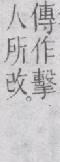 傳作擊
人所改。